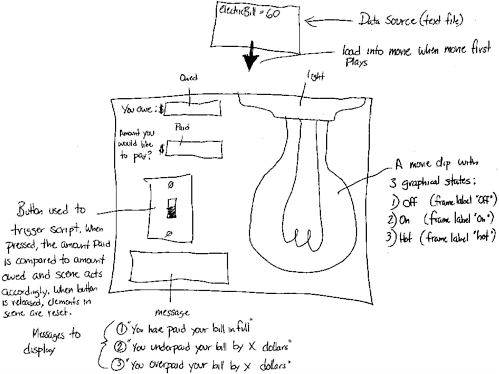 electricBill = 60
Data Source (text file)
load into movie when movie first
plays
Owed
light
You owe: $
Paid
Amount you
would like
to pay? $
A movie clip with
3 graphical states:
1) Off (frame label "Off")
2) On (frame label "On")
3) Hot (frame label "hot")
Button used to
trigger script. When
pressed, the amount Paid
is compared to amount
owed and scene acts
accordingly. When button
is released, elements in
scene are reset.
message
Messages to
display
① "You have paid your bill in full"
② "You underpaid your bill by X dollars"
③ "You overpaid your bill by X dollars"